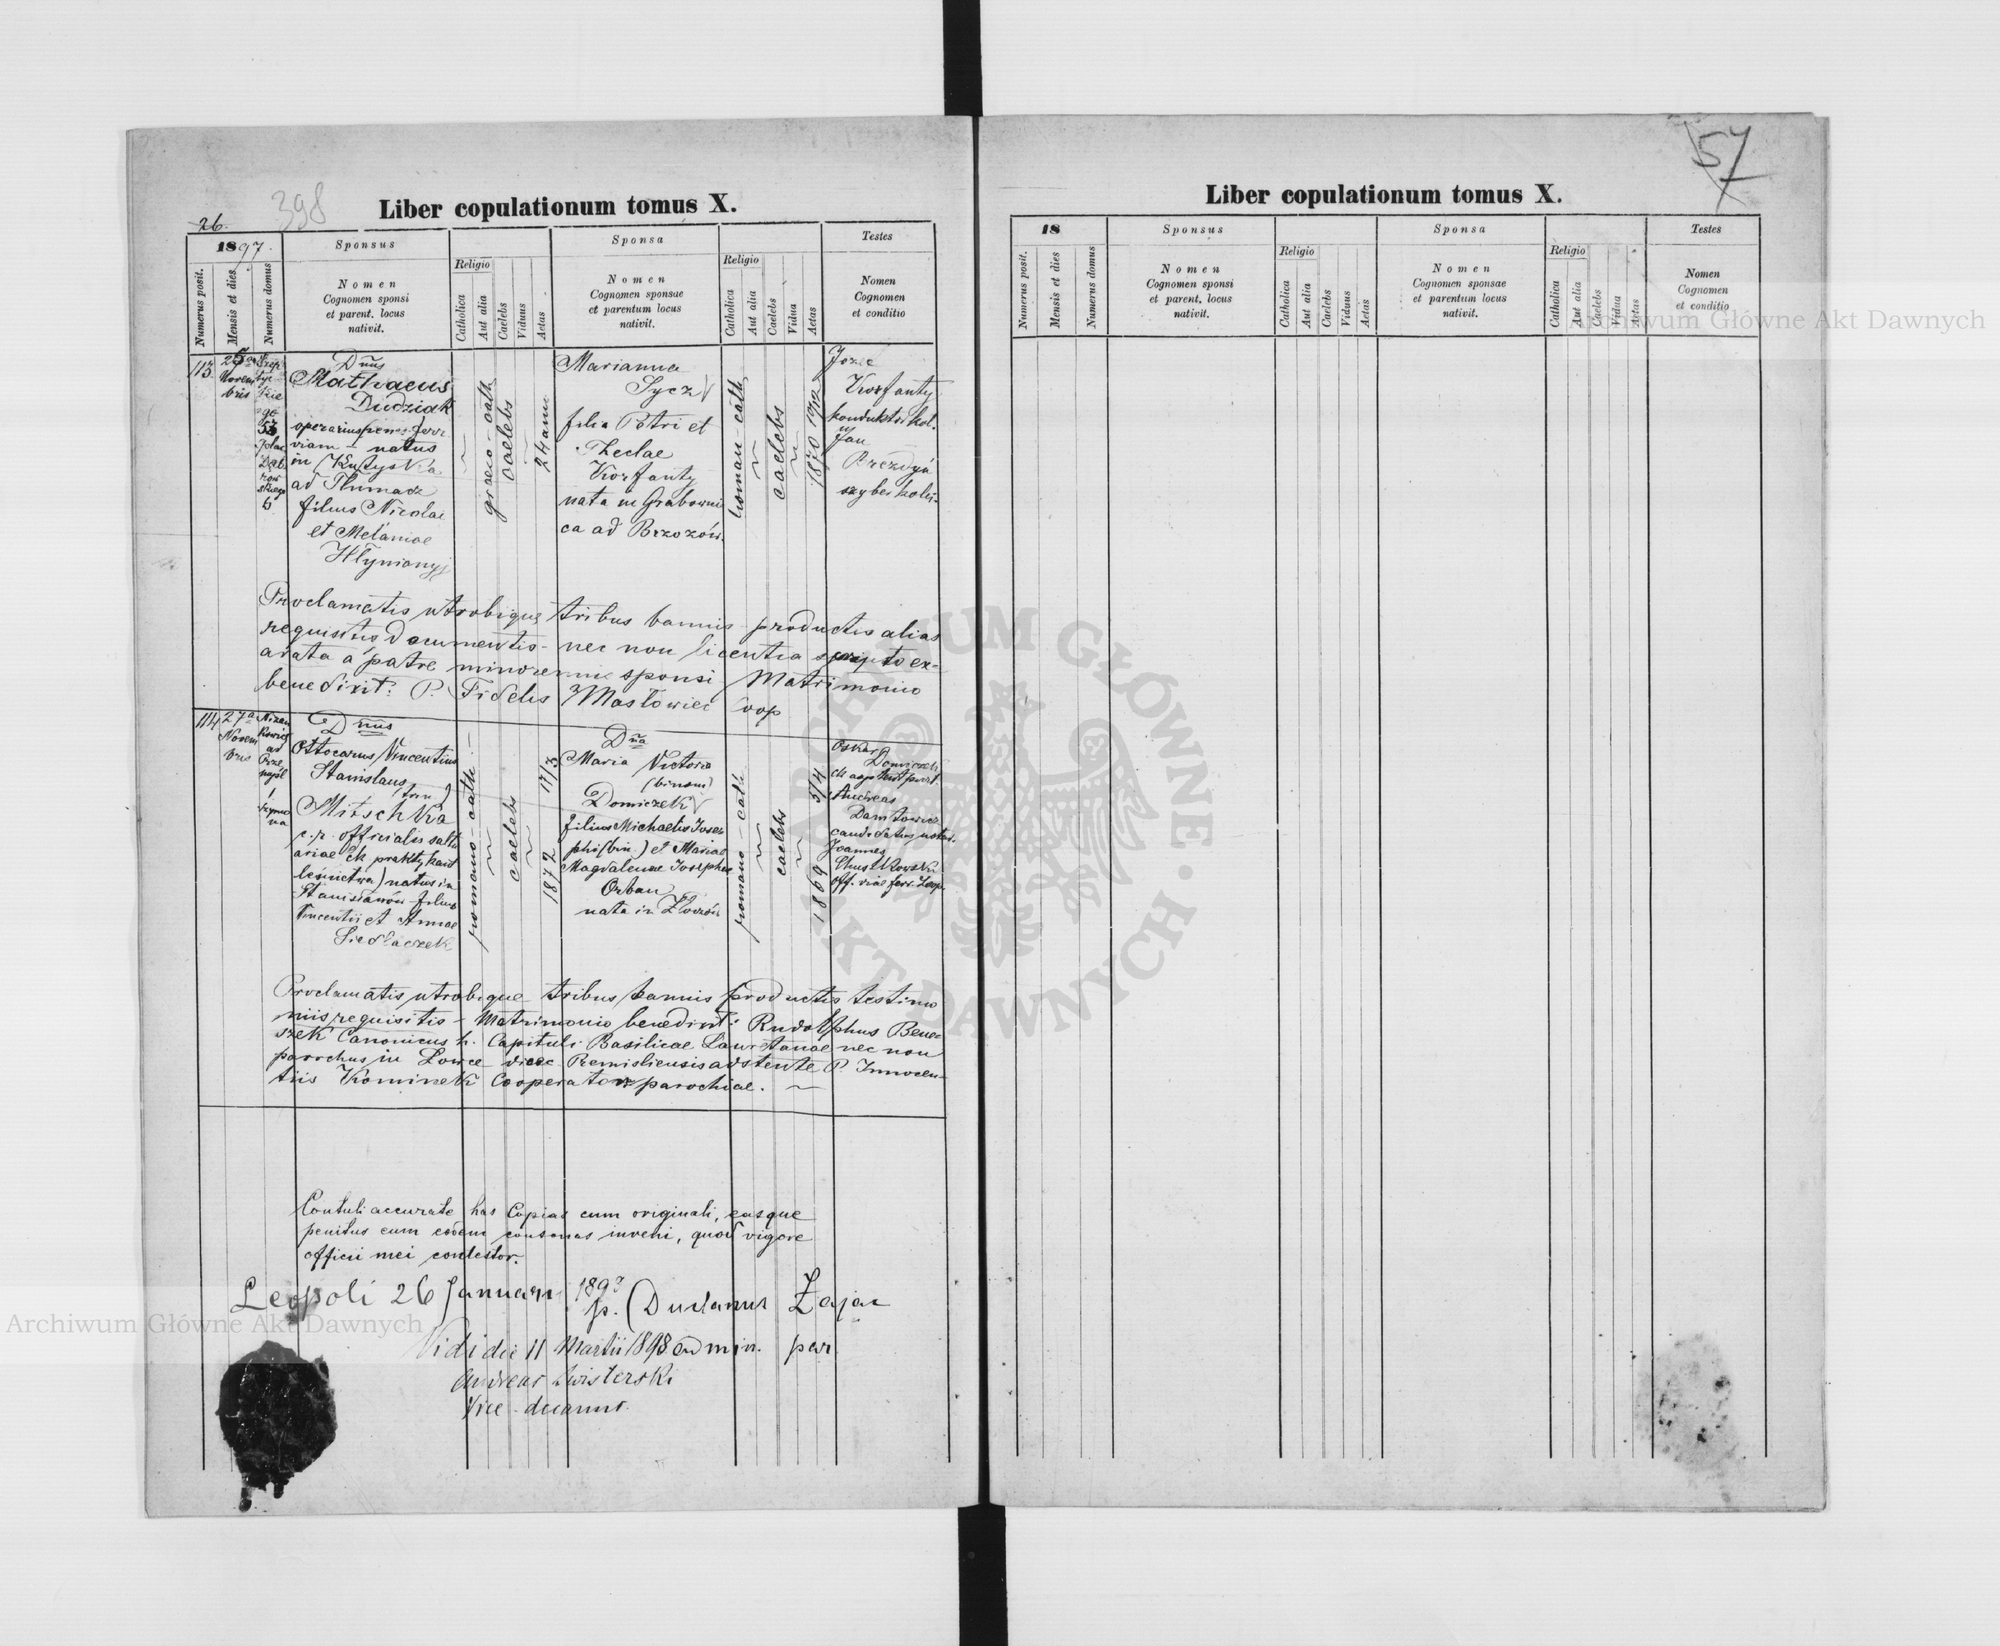 26.
398
Liber copulationum tomus X.
1897.
Sponsus
Sponsa
Testes
Numerus posit.
Mensis et dies
Numerus domus
Nomen
Cognomen sponsi
et parent. locus
nativit.
Religio
Catholica
Aut alia
Caelebs
Viduus
Aetas
Nomen
Cognomen sponsae
et parentum locus
nativit.
Religio
Catholica
Aut alia
Caelebs
Vidua
Aetas
Nomen
Cognomen
et conditio
113
25a
Novem
bris
53
Dnus
Mathaeus
Dudziak
operarius penes ferr
viam - natus
in
ad Tłumacz
filius Nicolai
et Melaniae
Hłynianyj
graeco-cath
caelebs
24 ann
Marianna
Sycz
filia Petri et
Theclae
Korfanty
nata in Grabowni
ca ad Brzozów.
roman-cath
caelebs
1870
Józef
Korfanty
kondukt. kol.
Jan
Proclamatis utrobique tribus bannis productis alias
requisitis documentis - nec non licentia scripto ex-
arata a patre minorenne sponsi Matrimonio
benedixit: P. Fidelis Masłowiec Coop
114
27a
Novem
bris
Nizan
kowice
ad
Prze
myśl
Dnus
Ottocarus Vincentius
Stanislaus
(trn)
Mitschka
c.r. officialis salt
ariae (ck praktykant
leśnictwa) natus in
Stanisławów filius
Vincentii et Annae
Siedlaczek
romano-cath
caelebs
1872 17/3
Dna
Maria Victoria
(binom)
Domiczek
filius Michaelis Jose
phi (bin.) et Mariae
Magdalenae Josephae
Orban
nata in Złoczów
romano-cath
caelebs
1869 5/4
Oskar
Domiczek
Andreas
candidatus notar.
Joannes
off. viae ferr. Leop.
Proclamatis utrobique tribus bannis productis testimo
niis requisitis - Matrimonio benedixit: Rudolphus Bene
szek Canonicus h. Capituli Basilicae Lauretanae nec non
parochus in Łowce diaec Premisliensis adstente P. Innocen-
tiis Kominek Cooperatore parochiae.
Contuli accurate has Copias cum originali, easque
penitus cum eodem consonas inveni, quod vigore
officii mei contestor.
Leopoli 26 Januarii 1897
p. Duklanus Zając
Vidi die 11 Martii 1898 admin. par.
Andreas
Vice-decanus.
57
Liber copulationum tomus X.
18
Sponsus
Sponsa
Testes
Numerus posit.
Mensis et dies
Numerus domus
Nomen
Cognomen sponsi
et parent. locus
nativit.
Religio
Catholica
Aut alia
Caelebs
Viduus
Aetas
Nomen
Cognomen sponsae
et parentum locus
nativit.
Religio
Catholica
Aut alia
Caelebs
Vidua
Aetas
Nomen
Cognomen
et conditio
Archiwum Główne Akt Dawnych
ARCHIWUM GŁÓWNE AKT DAWNYCH
Archiwum Główne Akt Dawnych